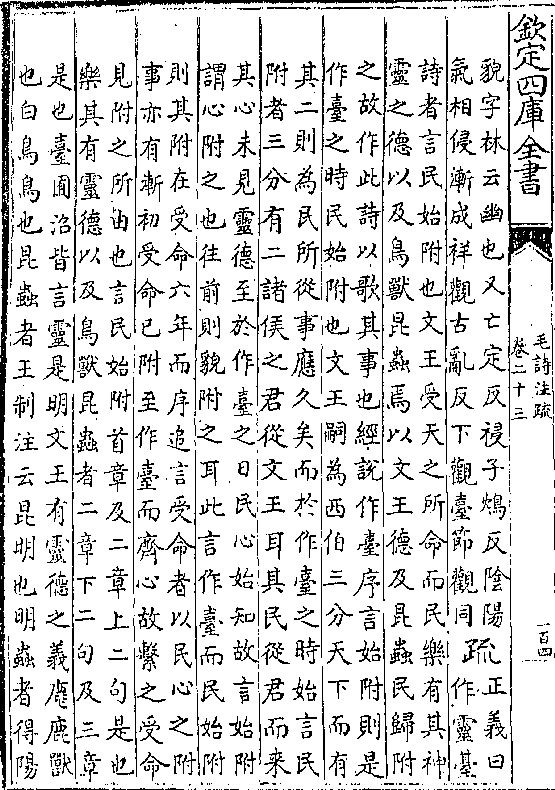 欽定四庫全書
毛詩注疏
卷二十三
一百四
藐字林云幽也又亡定反祲子鴆反陰陽
氣相侵漸成祥觀古亂反下觀臺節觀同疏正義曰作靈臺
詩者言民始附也文王受天之所命而民樂有其神
靈之德以及鳥獸昆蟲焉以文王德及昆蟲民歸附
之故作此詩以歌其事也經説作臺序言始附則是
作臺之時民始附也文王嗣為西伯三分天下而有
其二則為民所從事應久矣而於作臺之時始言民
附者三分有二諸侯之君從文王耳其民從君而來
其心未見靈德至於作臺之日民心始知故言始附
謂心附之也往前則貌附之耳此言作臺而民始附
則其附在受命六年而序追言受命者以民心之附
事亦有漸初受命已附至作臺而齊心故繫之受命
見附之所由也言民始附首章及二章上二句是也
樂其有靈德以及鳥獸昆蟲者二章下二句及三章
是也臺囿沼皆言靈是明文王有靈德之義麀鹿獸
也白鳥鳥也昆蟲者王制注云昆明也明蟲者得陽